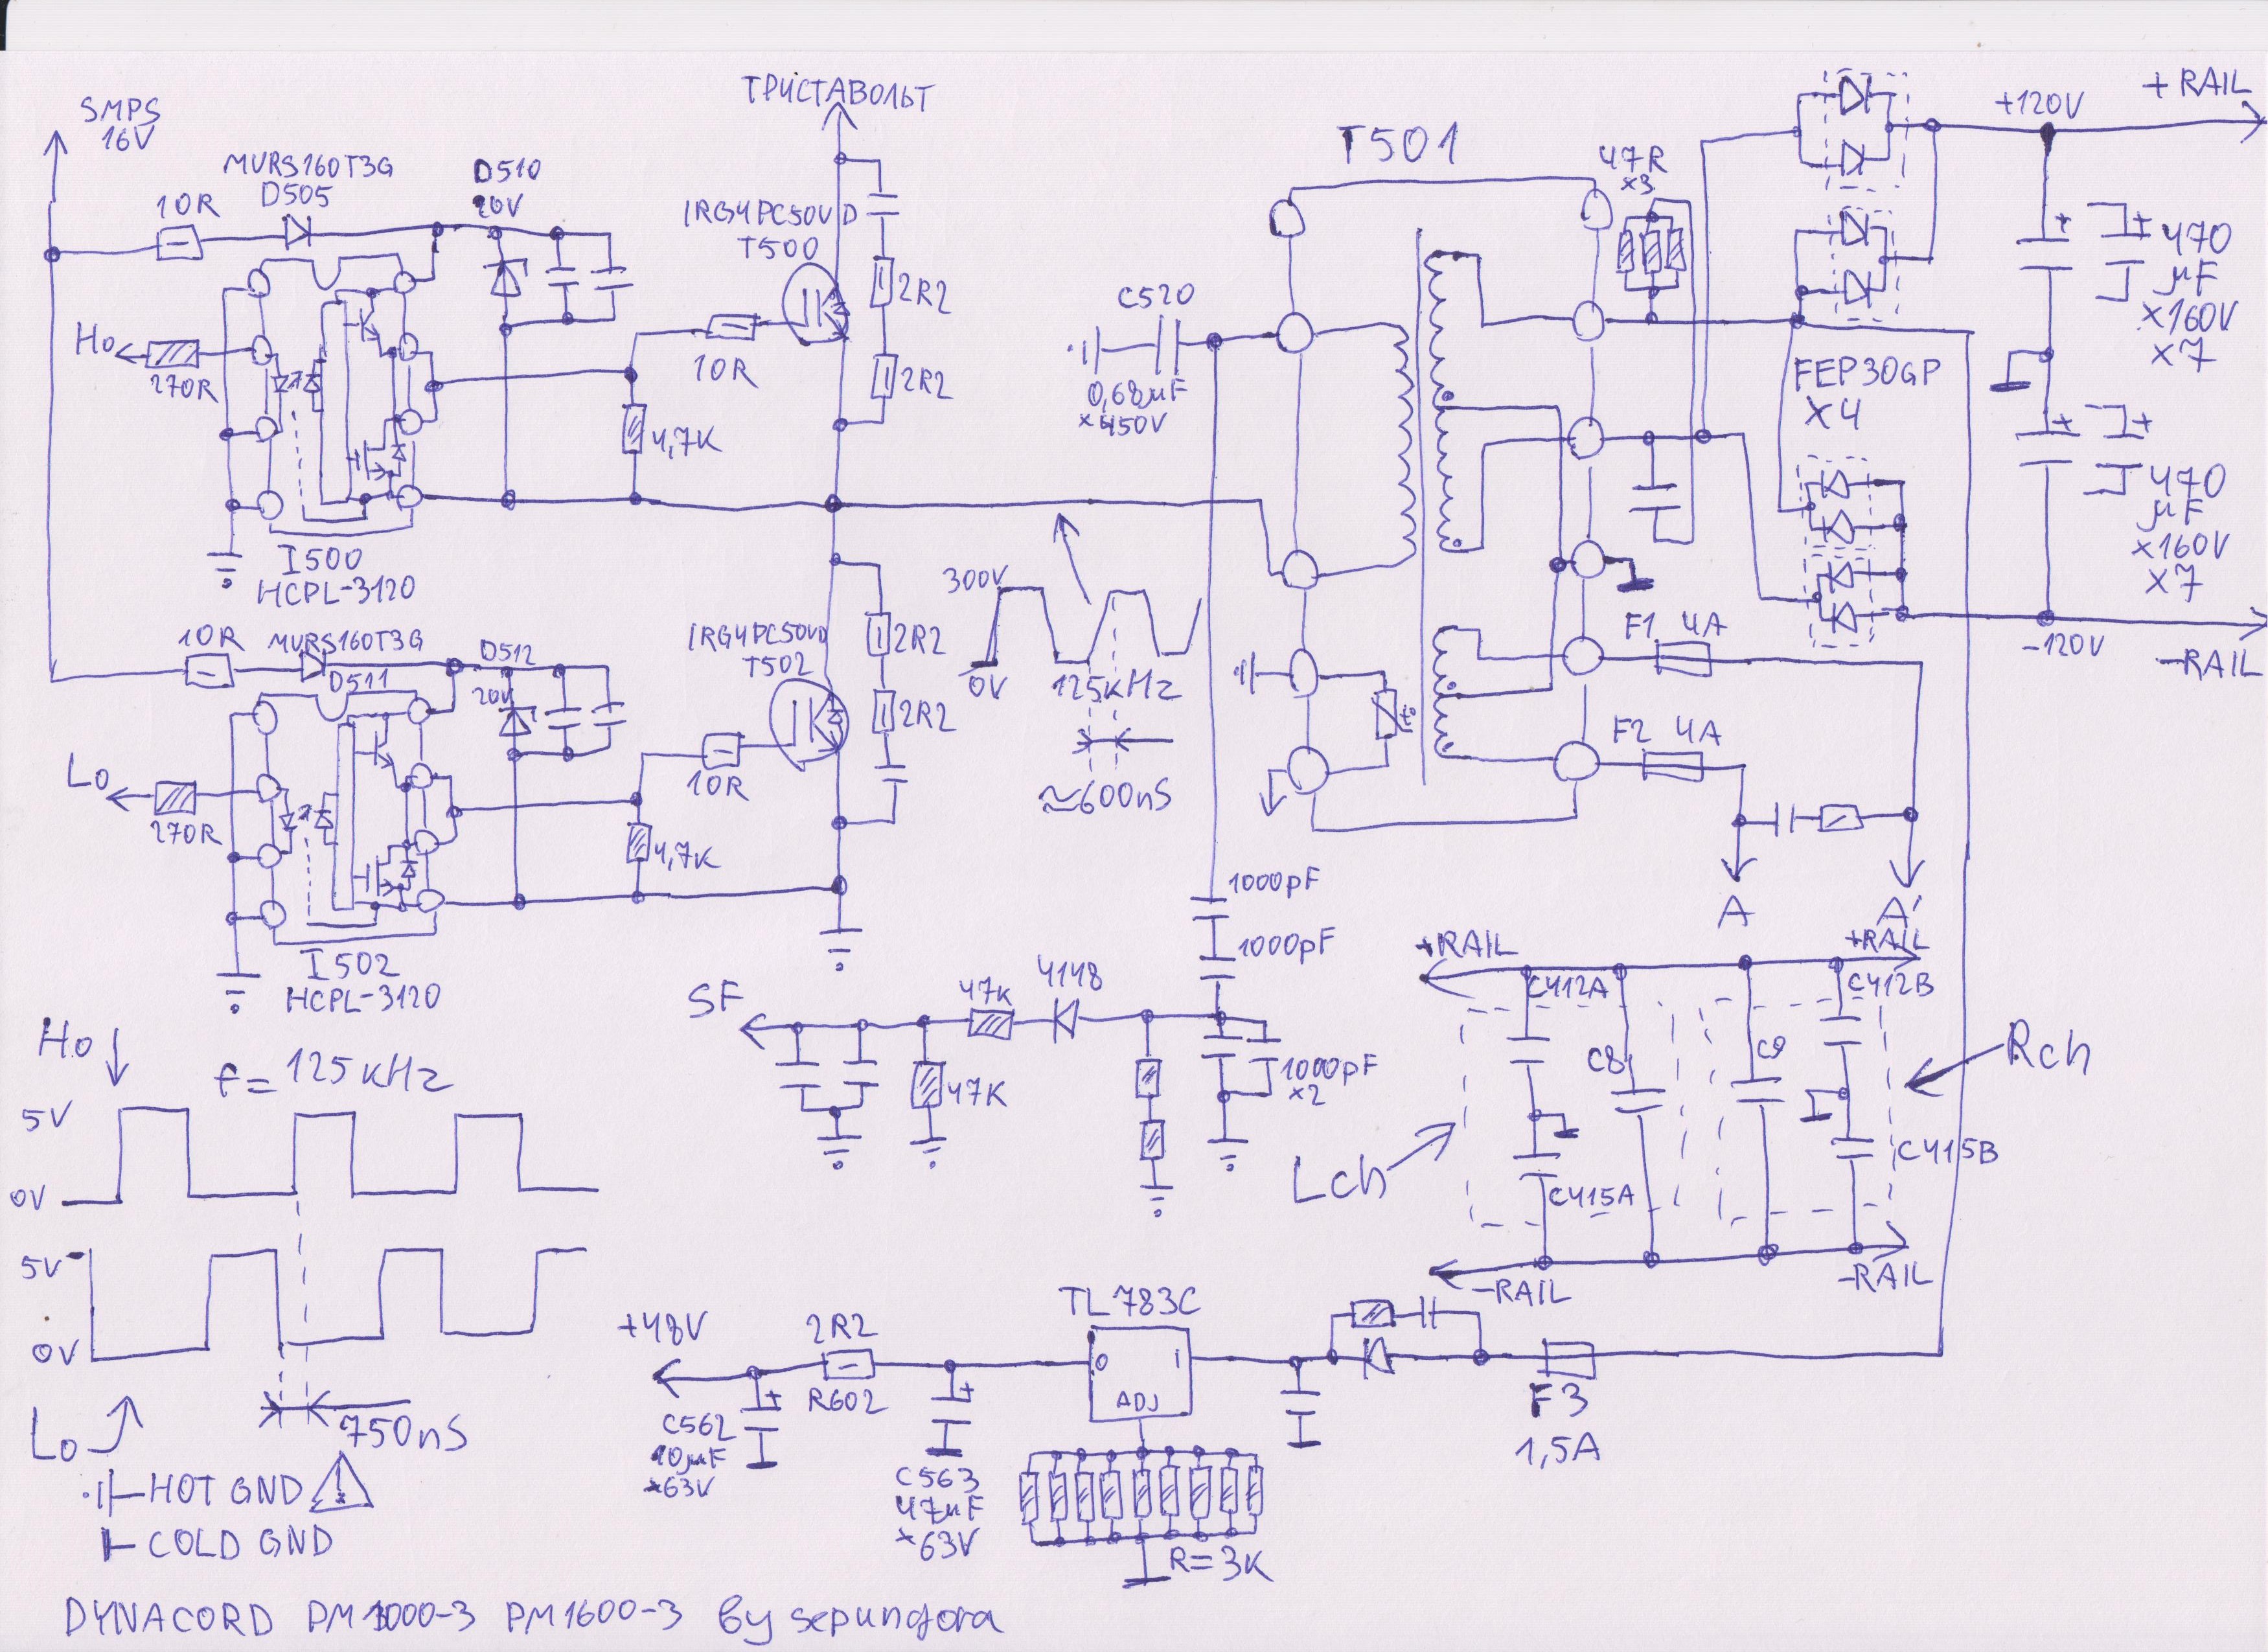 ТРИСТАВОЛЬТ
SMPS
16V
MURS160T3G
D505
10R
D510
20V
IRG4PC50UD
T500
2R2
2R2
10R
4,7K
Ho
270R
I500
HCPL-3120
T501
C520
0,68µF
×450V
47R
×3
+120V
+RAIL
470
µF
×160V
×7
FEP30GP
X4
470
µF
×160V
×7
-120V
-RAIL
10R
MURS160T3G
D511
D512
20V
IRG4PC50UD
T502
2R2
2R2
10R
4,7K
Lo
270R
I502
HCPL-3120
300V
0V
125KHz
≈600nS
t°
F1 4A
F2 4A
A
A'
1000pF
1000pF
1000pF
×2
SF
47K
4148
47K
+RAIL
+RAIL
C412A
C8
C9
C412B
C415A
C415B
Lch
Rch
-RAIL
-RAIL
Ho
f= 125KHz
5V
0V
5V
0V
Lo
750nS
+48V
2R2
R602
TL783C
O
I
ADJ
C562
10µF
×63V
C563
47µF
×63V
R=3K
F3
1,5A
HOT GND
COLD GND
DYNACORD PM1000-3 PM1600-3 by sepungora